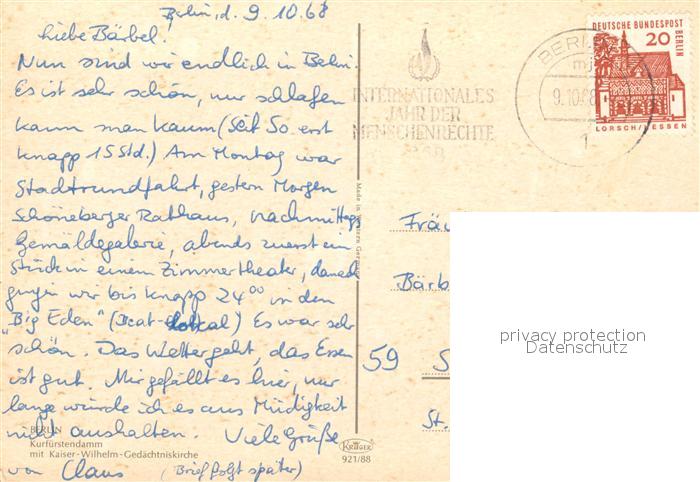 Berlin, d. 9.10.68
Liebe Bärbel!
Nun sind wir endlich in Berlin.
Es ist sehr schön, nur schlafen
kann man kaum (Seit So. erst
knapp 15 Std.) Am Montag war
Stadtrundfahrt, gestern Morgen
Schöneberger Rathaus, nachmittags
Gemäldegalerie, abends zuerst ein
Stück in einem Zimmertheater, danach
gingen wir bis knapp 24⁰⁰ in den
"Big Eden" (Beat-Lokal) Es war sehr
schön. Das Wetter geht, das Essen
ist gut. Mir gefällt es hier, nur
lange würde ich es aus Müdigkeit
nicht aushalten. Viele Grüße
von Claus (Brief folgt später)
BERLIN
Kurfürstendamm
mit Kaiser-Wilhelm-Gedächtniskirche
Made in Western Germany
KRÜGER
921/88
INTERNATIONALES
JAHR DER
MENSCHENRECHTE
BERLIN
9.10.68
1
DEUTSCHE BUNDESPOST
BERLIN
20
LORSCH/HESSEN
Fräu
Bärb
59 S
St.
privacy protection
Datenschutz